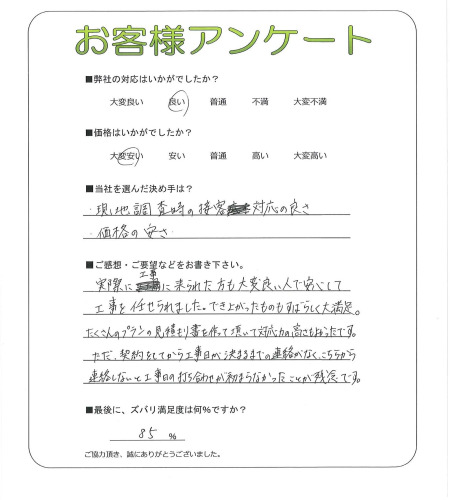 お客様アンケート
■弊社の対応はいかがでしたか？
大変良い 良い 普通 不満 大変不満
■価格はいかがでしたか？
大変安い 安い 普通 高い 大変高い
■当社を選んだ決め手は？
・現地調査時の接客対応の良さ
・価格の安さ
■ご感想・ご要望などをお書き下さい。
工事
実際に に来られた方も大変良い人で安心して
工事を任せられました。でき上がったものもすばらしく大満足。
たくさんのプランの見積もり書を作って頂いて対応力の高さもよかったです。
ただ、契約をしてから工事日が決まるまでの連絡がなく、こちらから
連絡しないと工事日の打ち合わせが始まらなかったことが残念です。
■最後に、ズバリ満足度は何%ですか？
85 %
ご協力頂き、誠にありがとうございました。